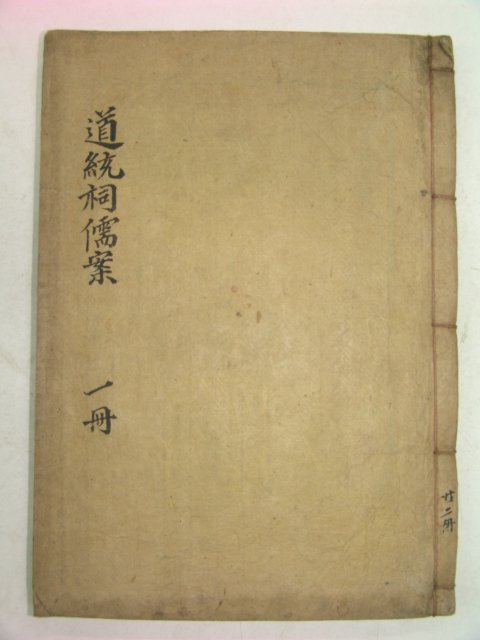 道統祠儒案
一冊
共二冊